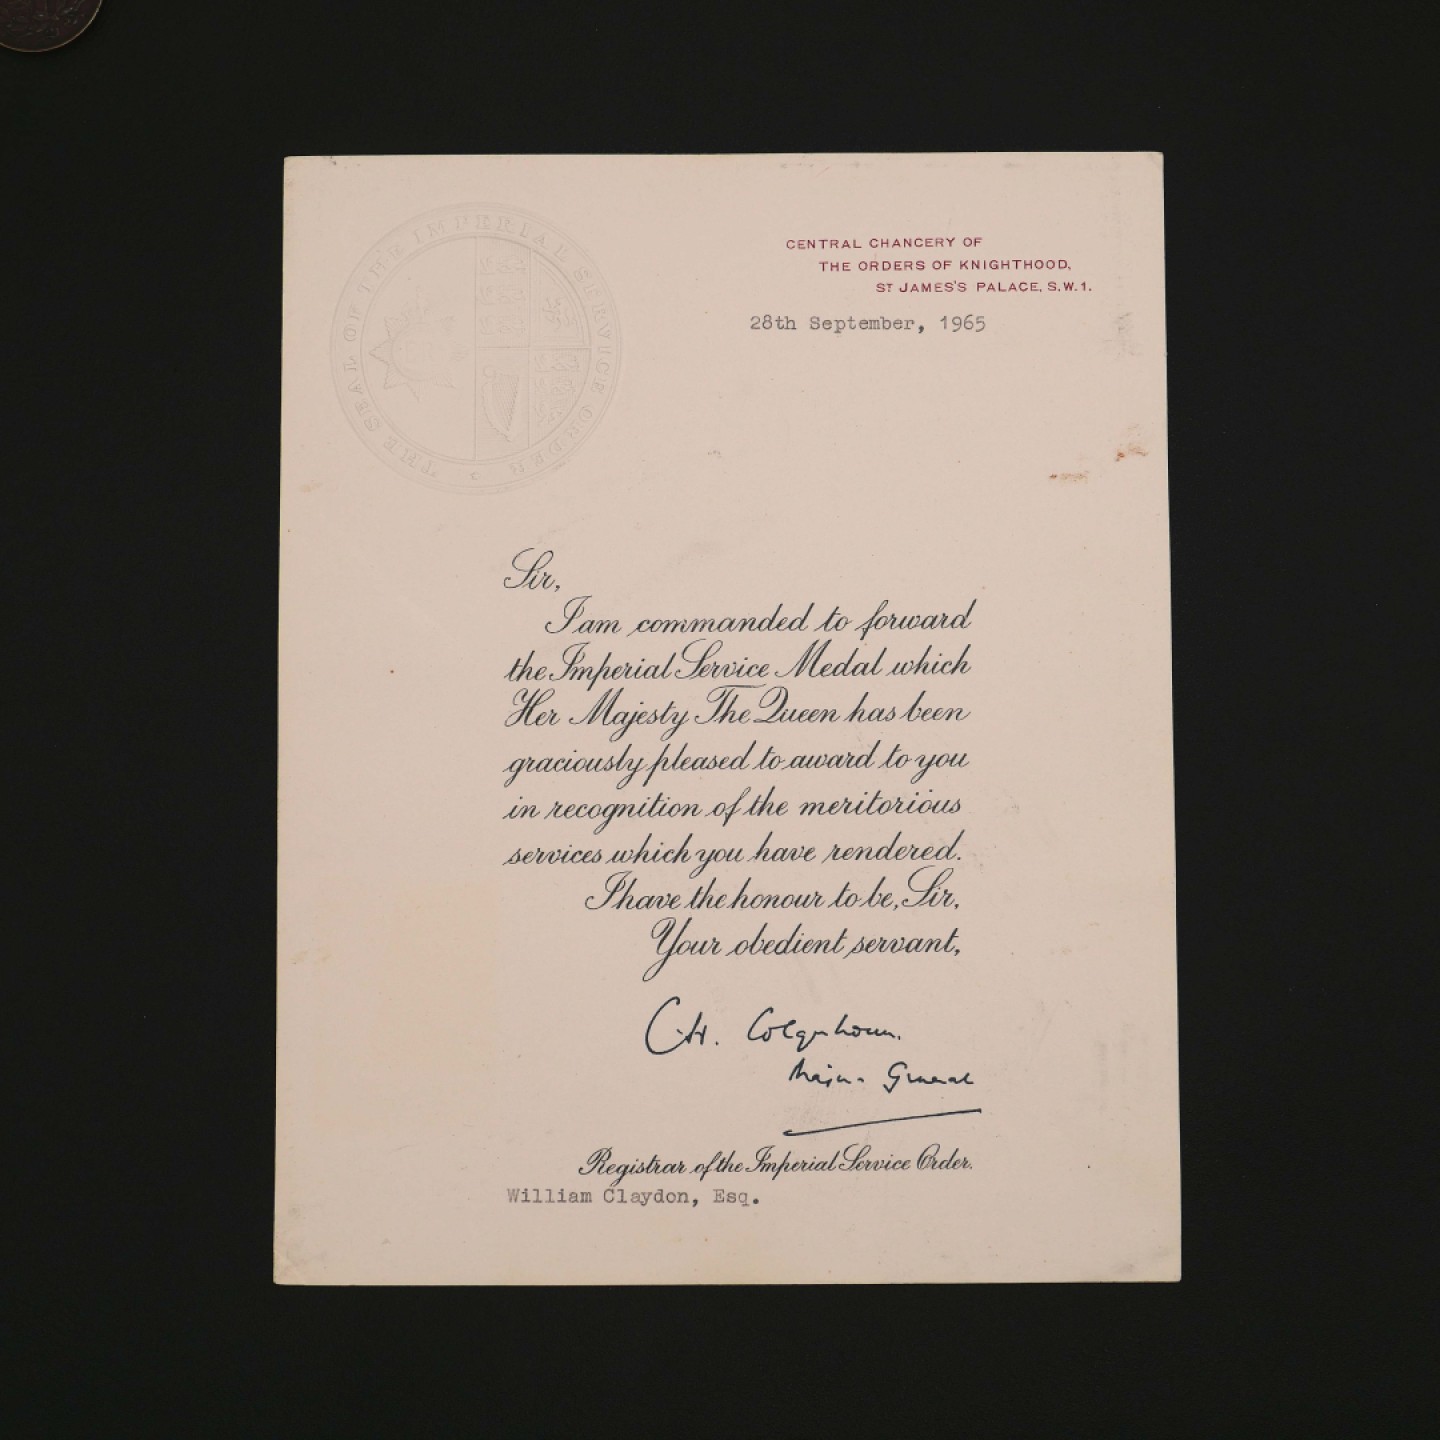 THE SEAL OF THE IMPERIAL SERVICE ORDER
CENTRAL CHANCERY OF
THE ORDERS OF KNIGHTHOOD,
ST JAMES'S PALACE, S.W.1.
28th September, 1965
Sir,
I am commanded to forward
the Imperial Service Medal which
Her Majesty The Queen has been
graciously pleased to award to you
in recognition of the meritorious
services which you have rendered.
I have the honour to be, Sir,
Your obedient servant,
Colquhoun.
Major General
Registrar of the Imperial Service Order.
William Claydon, Esq.